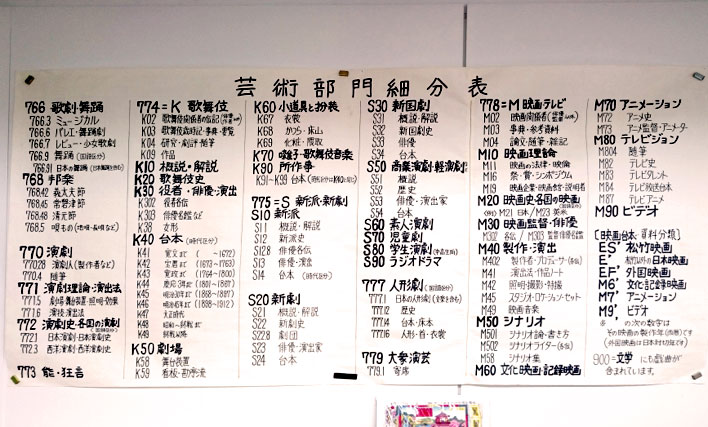 芸術部門細分表
766 歌劇・舞踊
766.3 ミュージカル
766.6 バレエ・舞踊劇
766.7 レビュー・少女歌劇
766.9 舞踊
766.91 日本舞踊
768 邦楽
768.42 義太夫節
768.45 常磐津節
768.48 清元節
768.5 唄もの
770 演劇
770.28 演劇人(製作者など)
770.4 随筆
771 演劇理論・演出法
771.5 劇場・舞台装置・照明・効果
771.6 演技・演出法
772 演劇史・各国の演劇
772.1 日本演劇・日本演劇史
772.3 西洋演劇・西洋演劇史
773 能・狂言
774=K 歌舞伎
K02 歌舞伎関係者の伝記
K03 歌舞伎歳時記・事典・書覧
K04 研究・劇評・随筆
K09 作品
K10 概説・解説
K20 歌舞伎史
K30 役者・俳優・演出
K302 役者各伝
K303 俳優名鑑など
K38 女形
K40 台本(時代区分)
K41 寛文まで ( ~1672)
K42 宝暦まで (1673~1763)
K43 寛政まで (1764~1800)
K44 慶応3年まで (1801~1867)
K45 明治30年まで (1868~1897)
K46 明治45年まで (1898~1912)
K47 大正時代
K48 昭和
K49 戦後
K50 劇場
K58 舞台装置
K59 看板・勘亭流
K60 小道具と扮装
K67 衣裳
K68 かつら・床山
K69 化粧・隈取
K70 囃子・歌舞伎音楽
K90 所作事
K91~K99 台本
775=S 新派・新劇
S10 新派
S11 概説・解説
S12 新派史
S128 俳優各伝
S13 俳優・演出
S14 台本(時代区分)
S20 新劇
S21 概説・解説
S22 新劇史
S228 劇団
S23 俳優・演出家
S24 台本
S30 新国劇
S31 概説・解説
S32 新国劇史
S33 俳優
S34 台本
S50 商業演劇・軽演劇
S51 概説
S52 歴史
S53 俳優
S54 台本
S60 素人演劇
S70 児童劇
S80 学生演劇
S90 ラジオドラマ
777 人形劇
777.1 日本の人形劇
777.12 歴史
777.14 台本・床本
777.16 人形・首・衣裳
779 大衆演芸
779.1 寄席
778=M 映画・テレビ
M02 映画関係者
M03 事典・参考資料
M04 論文・随筆・雑記
M10 映画理論
M11 映画の法律・倫理
M16 祭・賞・シンポジウム
M19 映画企業・映画館・説明者
M20 映画史・各国の映画
(例) M21 日本/M23 英米
M30 映画監督・俳優
M302 各伝/M303
M40 製作・演出
M402 製作者・プロデューサー
M41 演出法・作品ノート
M42 照明・撮影・特撮
M45 スタジオ・ロケーション・セット
M49 映画音楽
M50 シナリオ
M501 シナリオ論・書き方
M502 シナリオライター
M58 シナリオ集
M60 文化映画・記録映画
M70 アニメーション
M72 アニメ史
M73 アニメ監督・アニメーター
M80 テレビジョン
M804 随筆
M82 テレビ史
M83 テレビタレント
M84 テレビ放送台本
M87 テレビアニメ
M90 ビデオ
[映画台本・資料分類]
ES' 松竹映画
E' 松竹以外の日本映画
EF' 外国映画
M6' 文化・記録映画
M7' アニメーション
M9' ビデオ
※ ' の次の数字は
その映画の製作年(西暦)です
(外国映画は日本封切年です)
900=文学 にも戯曲が
含まれています。